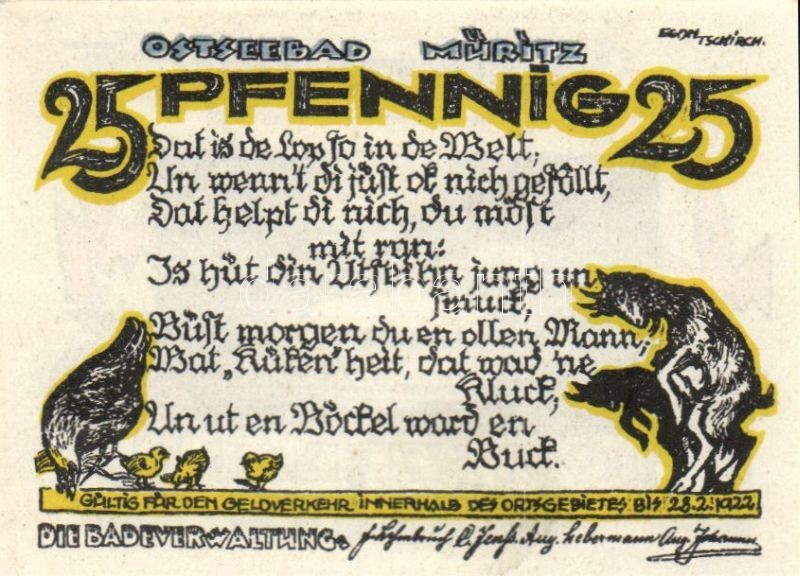 OSTSEEBAD MÜRITZ
EGON TSCHIRCH.
25 PFENNIG 25
Dat is de Lop so in de Welt,
Un wenn't di jüst ok nich geföllt,
Dat helpt di nich, du möst
mit ran:
Is hüt din Utseihn jung un
smuck,
Büst morgen du en ollen Mann;
Wat „Küken" heit, dat ward 'ne
Kluck,
Un ut en Böckel ward en
Buck.
GÜLTIG FÜR DEN GELDVERKEHR INNERHALB DES ORTSGEBIETES BIS 28.2.1922
DIE BADEVERWALTUNG.
Aug. Lebermann Aug.